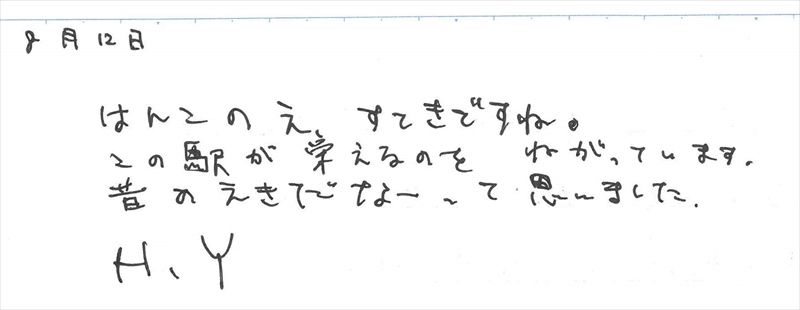 8月12日
はんこのえ、すてきですね。
この駅が栄えるのを ねがっています。
昔のえきだなーって思いました.
H、Y